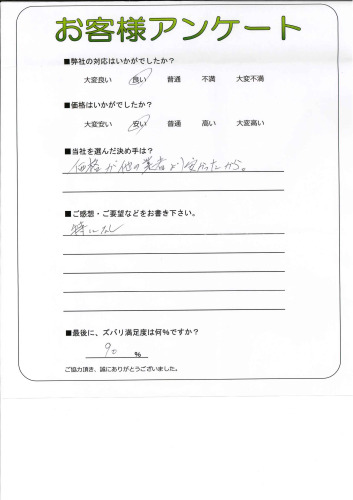 お客様アンケート
■弊社の対応はいかがでしたか？
大変良い 良い 普通 不満 大変不満
■価格はいかがでしたか？
大変安い 安い 普通 高い 大変高い
■当社を選んだ決め手は？
価格が他の業者より安かったから。
■ご感想・ご要望などをお書き下さい。
特になし
■最後に、ズバリ満足度は何％ですか？
90 %
ご協力頂き、誠にありがとうございました。